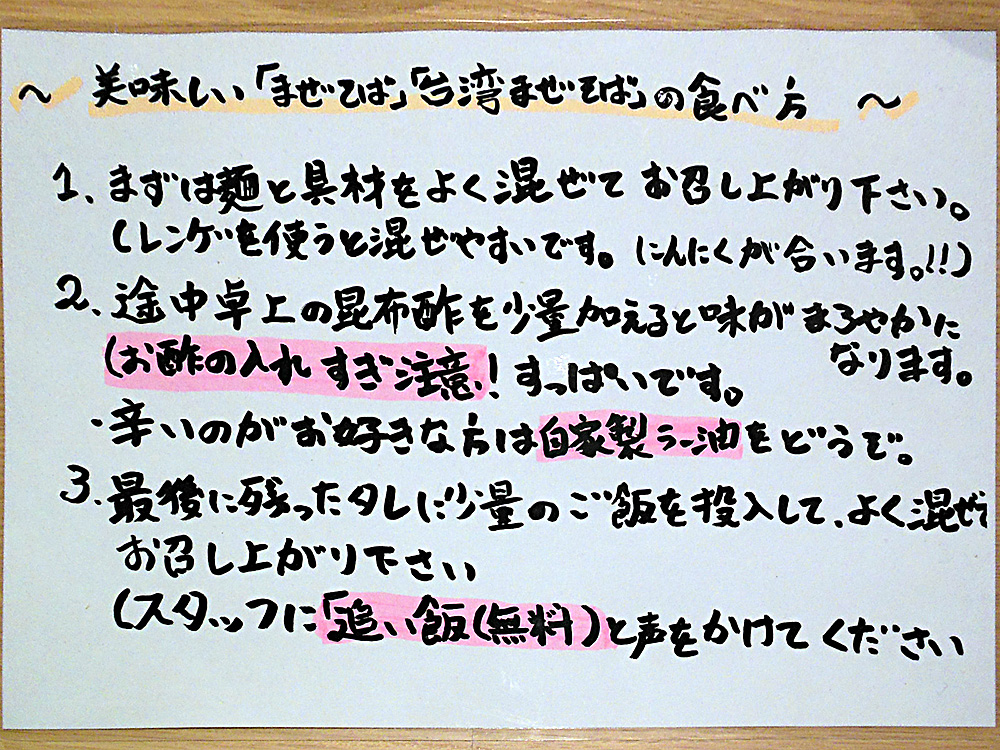 ～ 美味しい「まぜそば」「台湾まぜそば」の食べ方 ～
1、まずは麺と具材をよく混ぜて お召し上がり下さい。
(レンゲを使うと混ぜやすいです。 にんにくが合います。!!)
2、途中卓上の昆布酢を少量加えると味がまろやかに
なります。
(お酢の入れすぎ注意!すっぱいです。
・辛いのがお好きな方は自家製ラー油をどうぞ。
3、最後に残ったタレに少量のご飯を投入して、よく混ぜて
お召し上がり下さい
(スタッフに「追い飯(無料)と声をかけてください